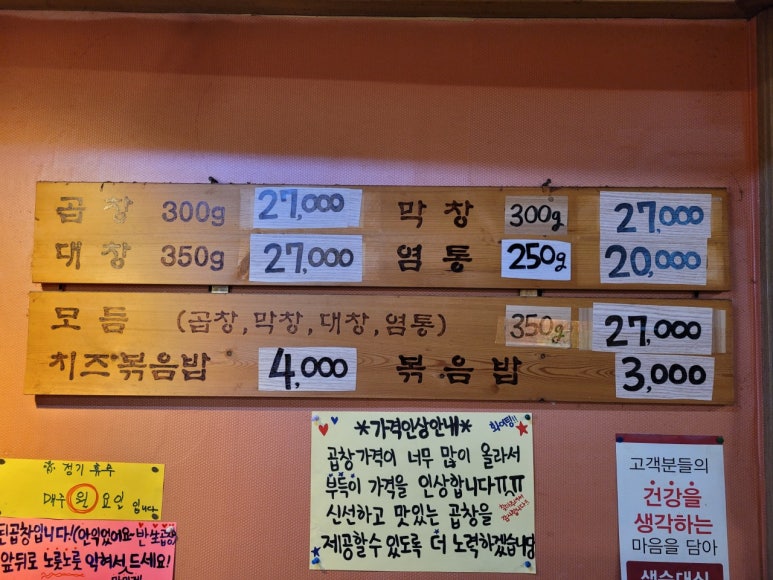 곱창 300g 27,000 막창 300g 27,000
대창 350g 27,000 염통 250g 20,000
모듬 (곱창,막창,대창,염통) 350g 27,000
치즈볶음밥 4,000 볶음밥 3,000
*가격인상안내* 화이팅!!
곱창가격이 너무 많이 올라서
부득이 가격을 인상합니다ㅠㅠ
신선하고 맛있는 곱창을
제공할수 있도록 더 노력하겠습니당
정기 휴무
매주 월 요일 입니다
된곱창입니다!(안익었어요~반생곱창
앞뒤로 노릇노릇 익혀서 드세요!
고객분들의
건강을
생각하는
마음을 담아
생수대신